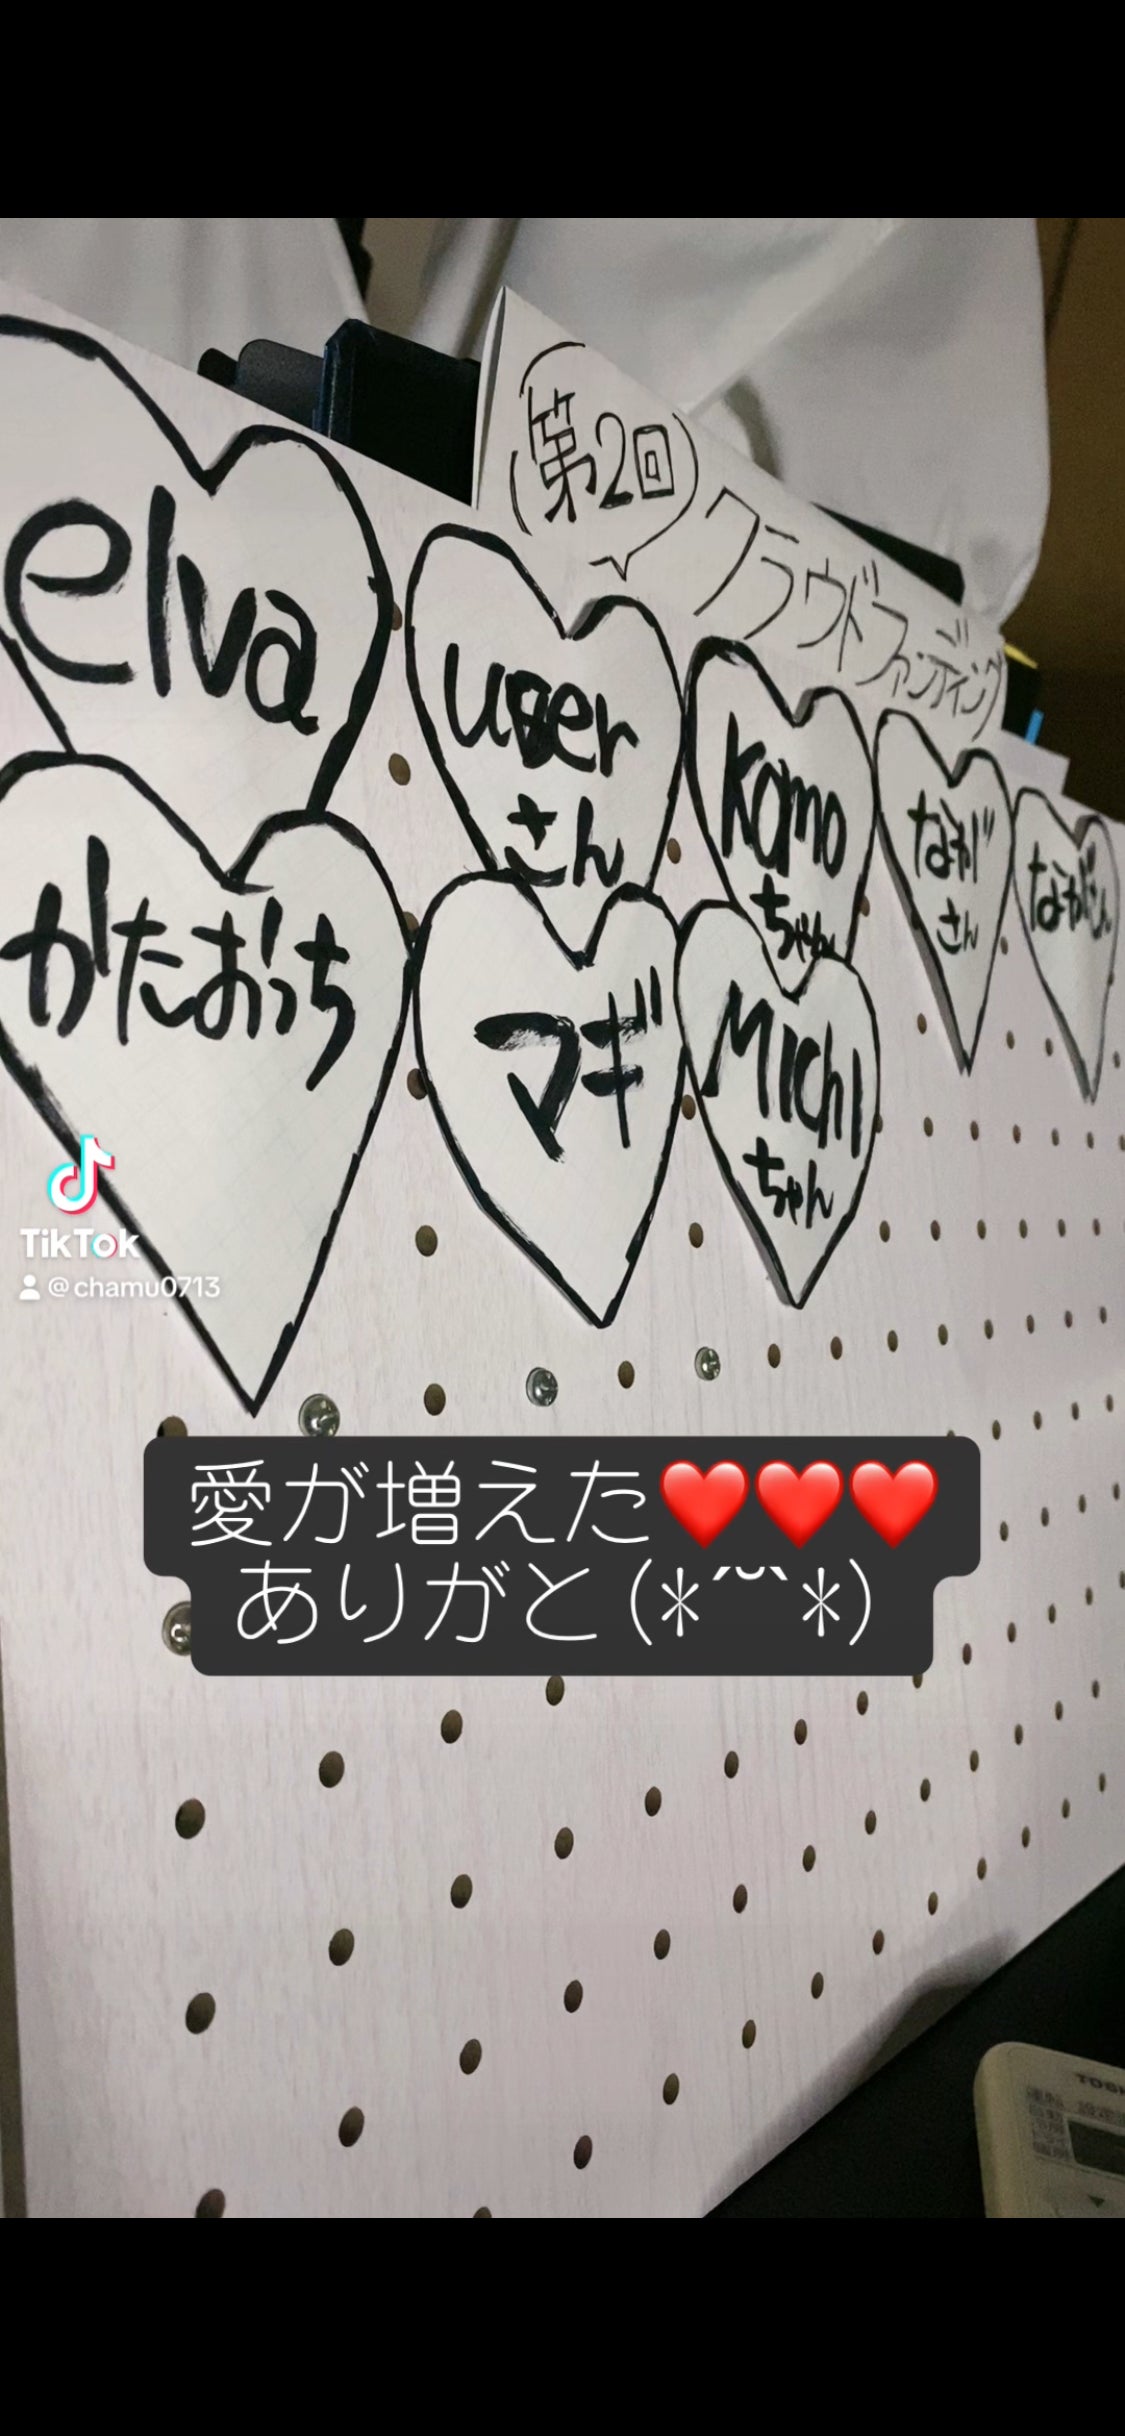 (第2回)
クラウドファンディング
elva
user
さん
komo
ちゃん
なが
さん
かたおっち
マギ
MIChI
ちゃん
TikTok
@chamu0713
愛が増えた❤️❤️❤️
ありがと(*˘︶˘*)